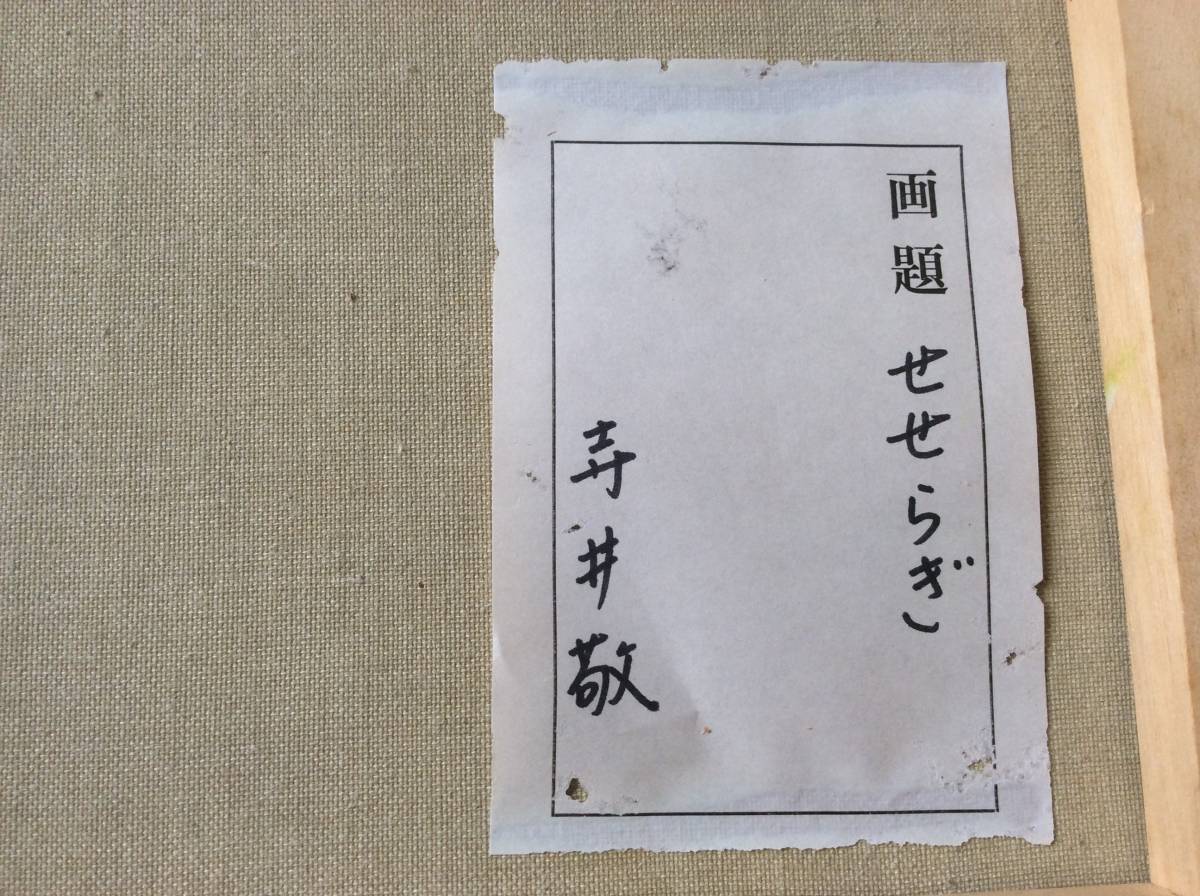 画題 せせらぎ
寺井敬